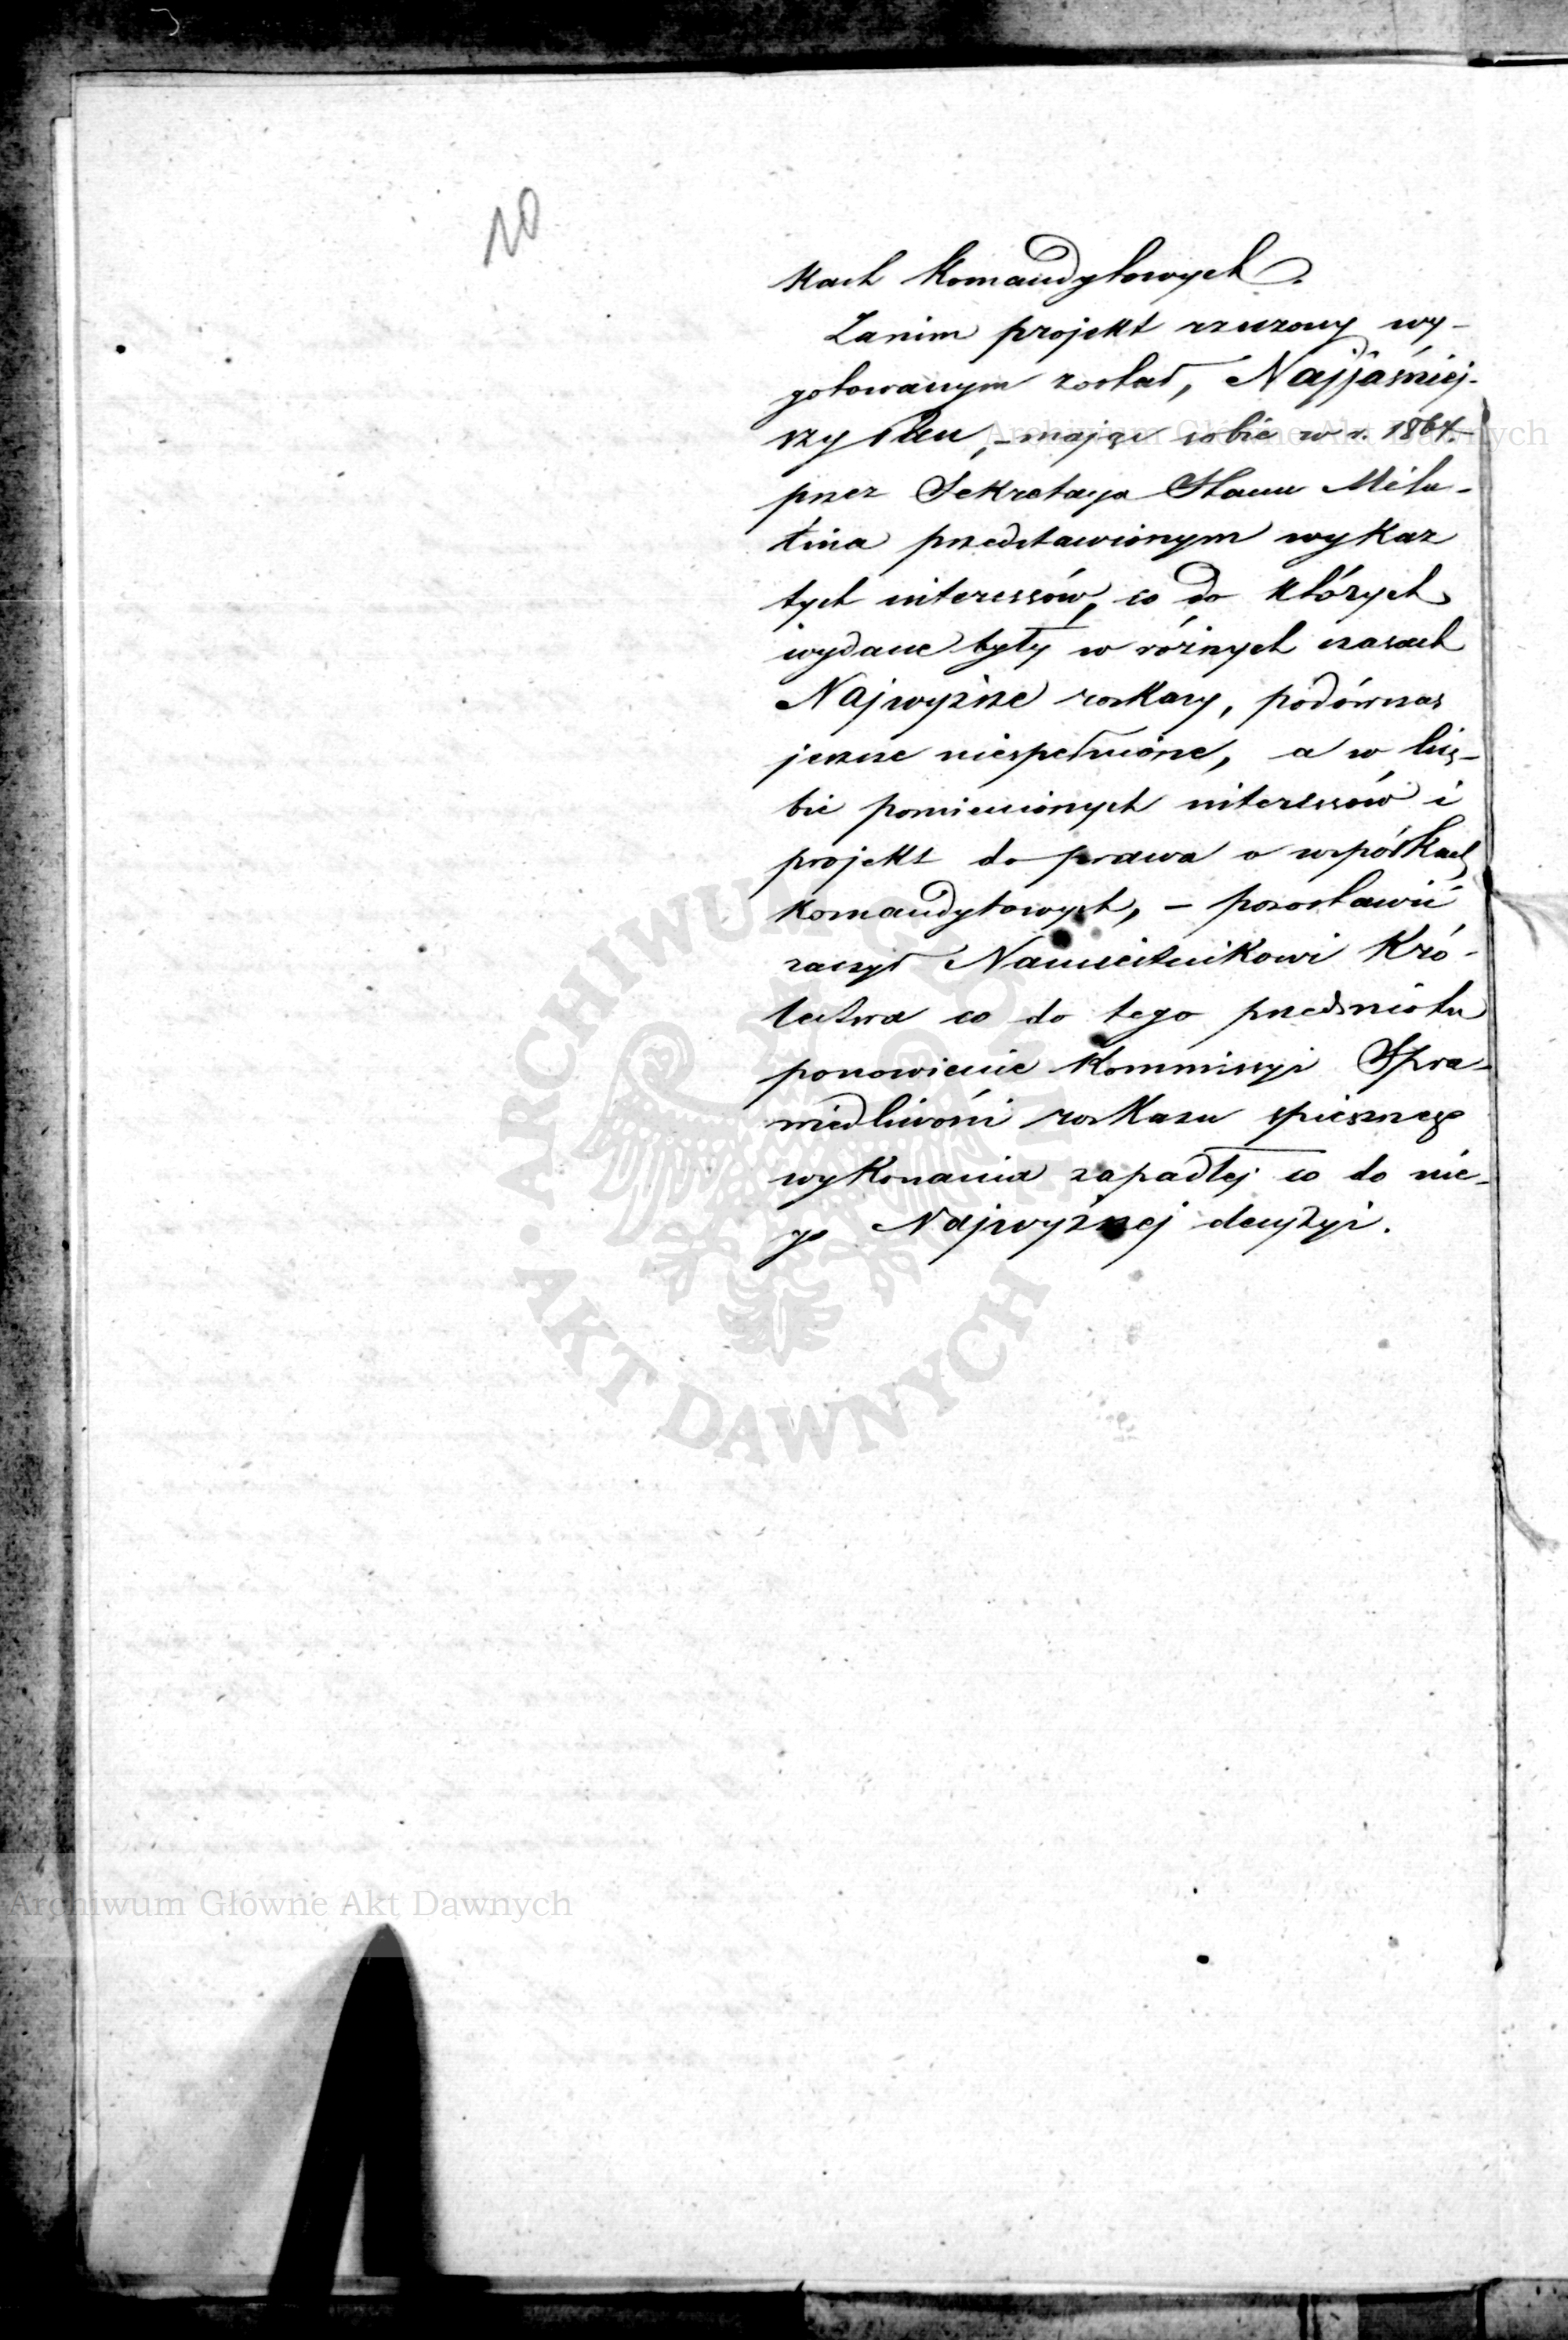 10
kach komandytowych.
Zanim projekt rzeczony wy-
gotowanym został, Najjaśniej-
szy Pan, – mając sobie w r. 1864
przez Sekretarza Stanu Milu-
tina przedstawionym wykaz
tych interessów, co do których
wydane były w różnych czasach
Najwyższe rozkazy, podówczas
jeszcze niespełnione, a w licz-
bie pomienionych interessów i
projekt do prawa o wspólkach
komandytowych, – pozostawić
raczył Namiestnikowi Kró-
lestwa co do tego przedmiotu
ponowienie Kommissyi Spra-
wiedliwości rozkazu spiesznego
wykonania zapadłej co do nie-
go Najwyższej decyzyi.
ARCHIWUM GŁÓWNE AKT DAWNYCH
Archiwum Główne Akt Dawnych
Archiwum Główne Akt Dawnych